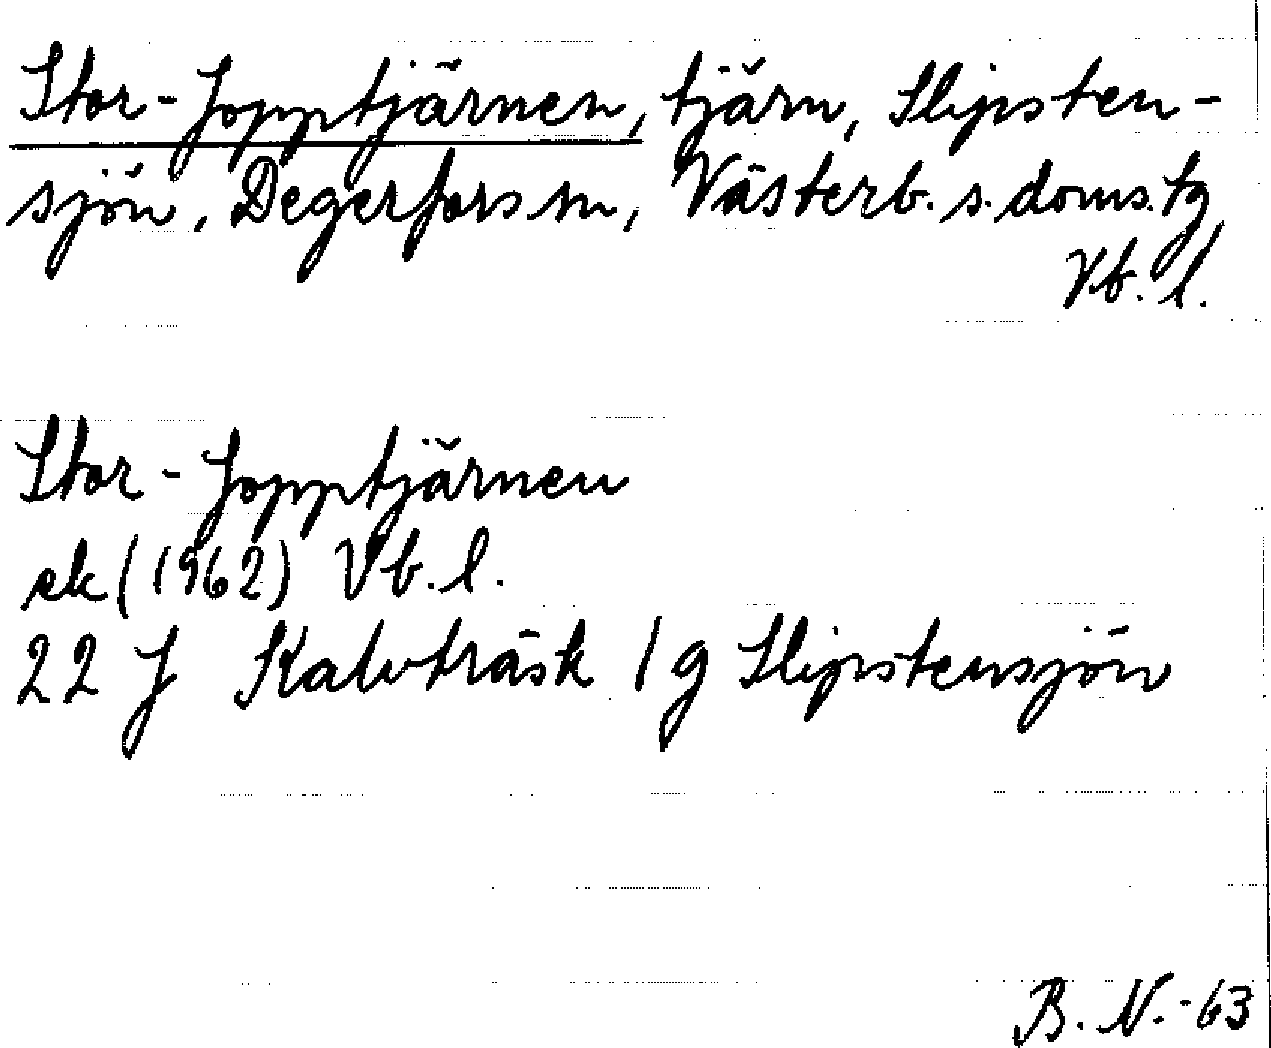 Stor-Jopptjärnen, tjärn, Slipsten-
sjön, Degerfors sn, Västerb. s. doms. tg
Vb. l.
Stor-Jopptjärnen
ek (1962) Vb. l.
22 J Kalvträsk 1 g Slipstensjön
B. N. -63